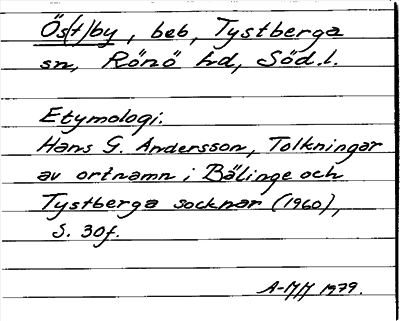 Ös(t)by, beb, Tystberga
sn, Rönö hd, Söd.l.
Etymologi.
Hans G. Andersson, Tolkningar
av ortnamn i Bälinge och
Tystberga socknar (1960),
S. 30f.
A-MM 1979.